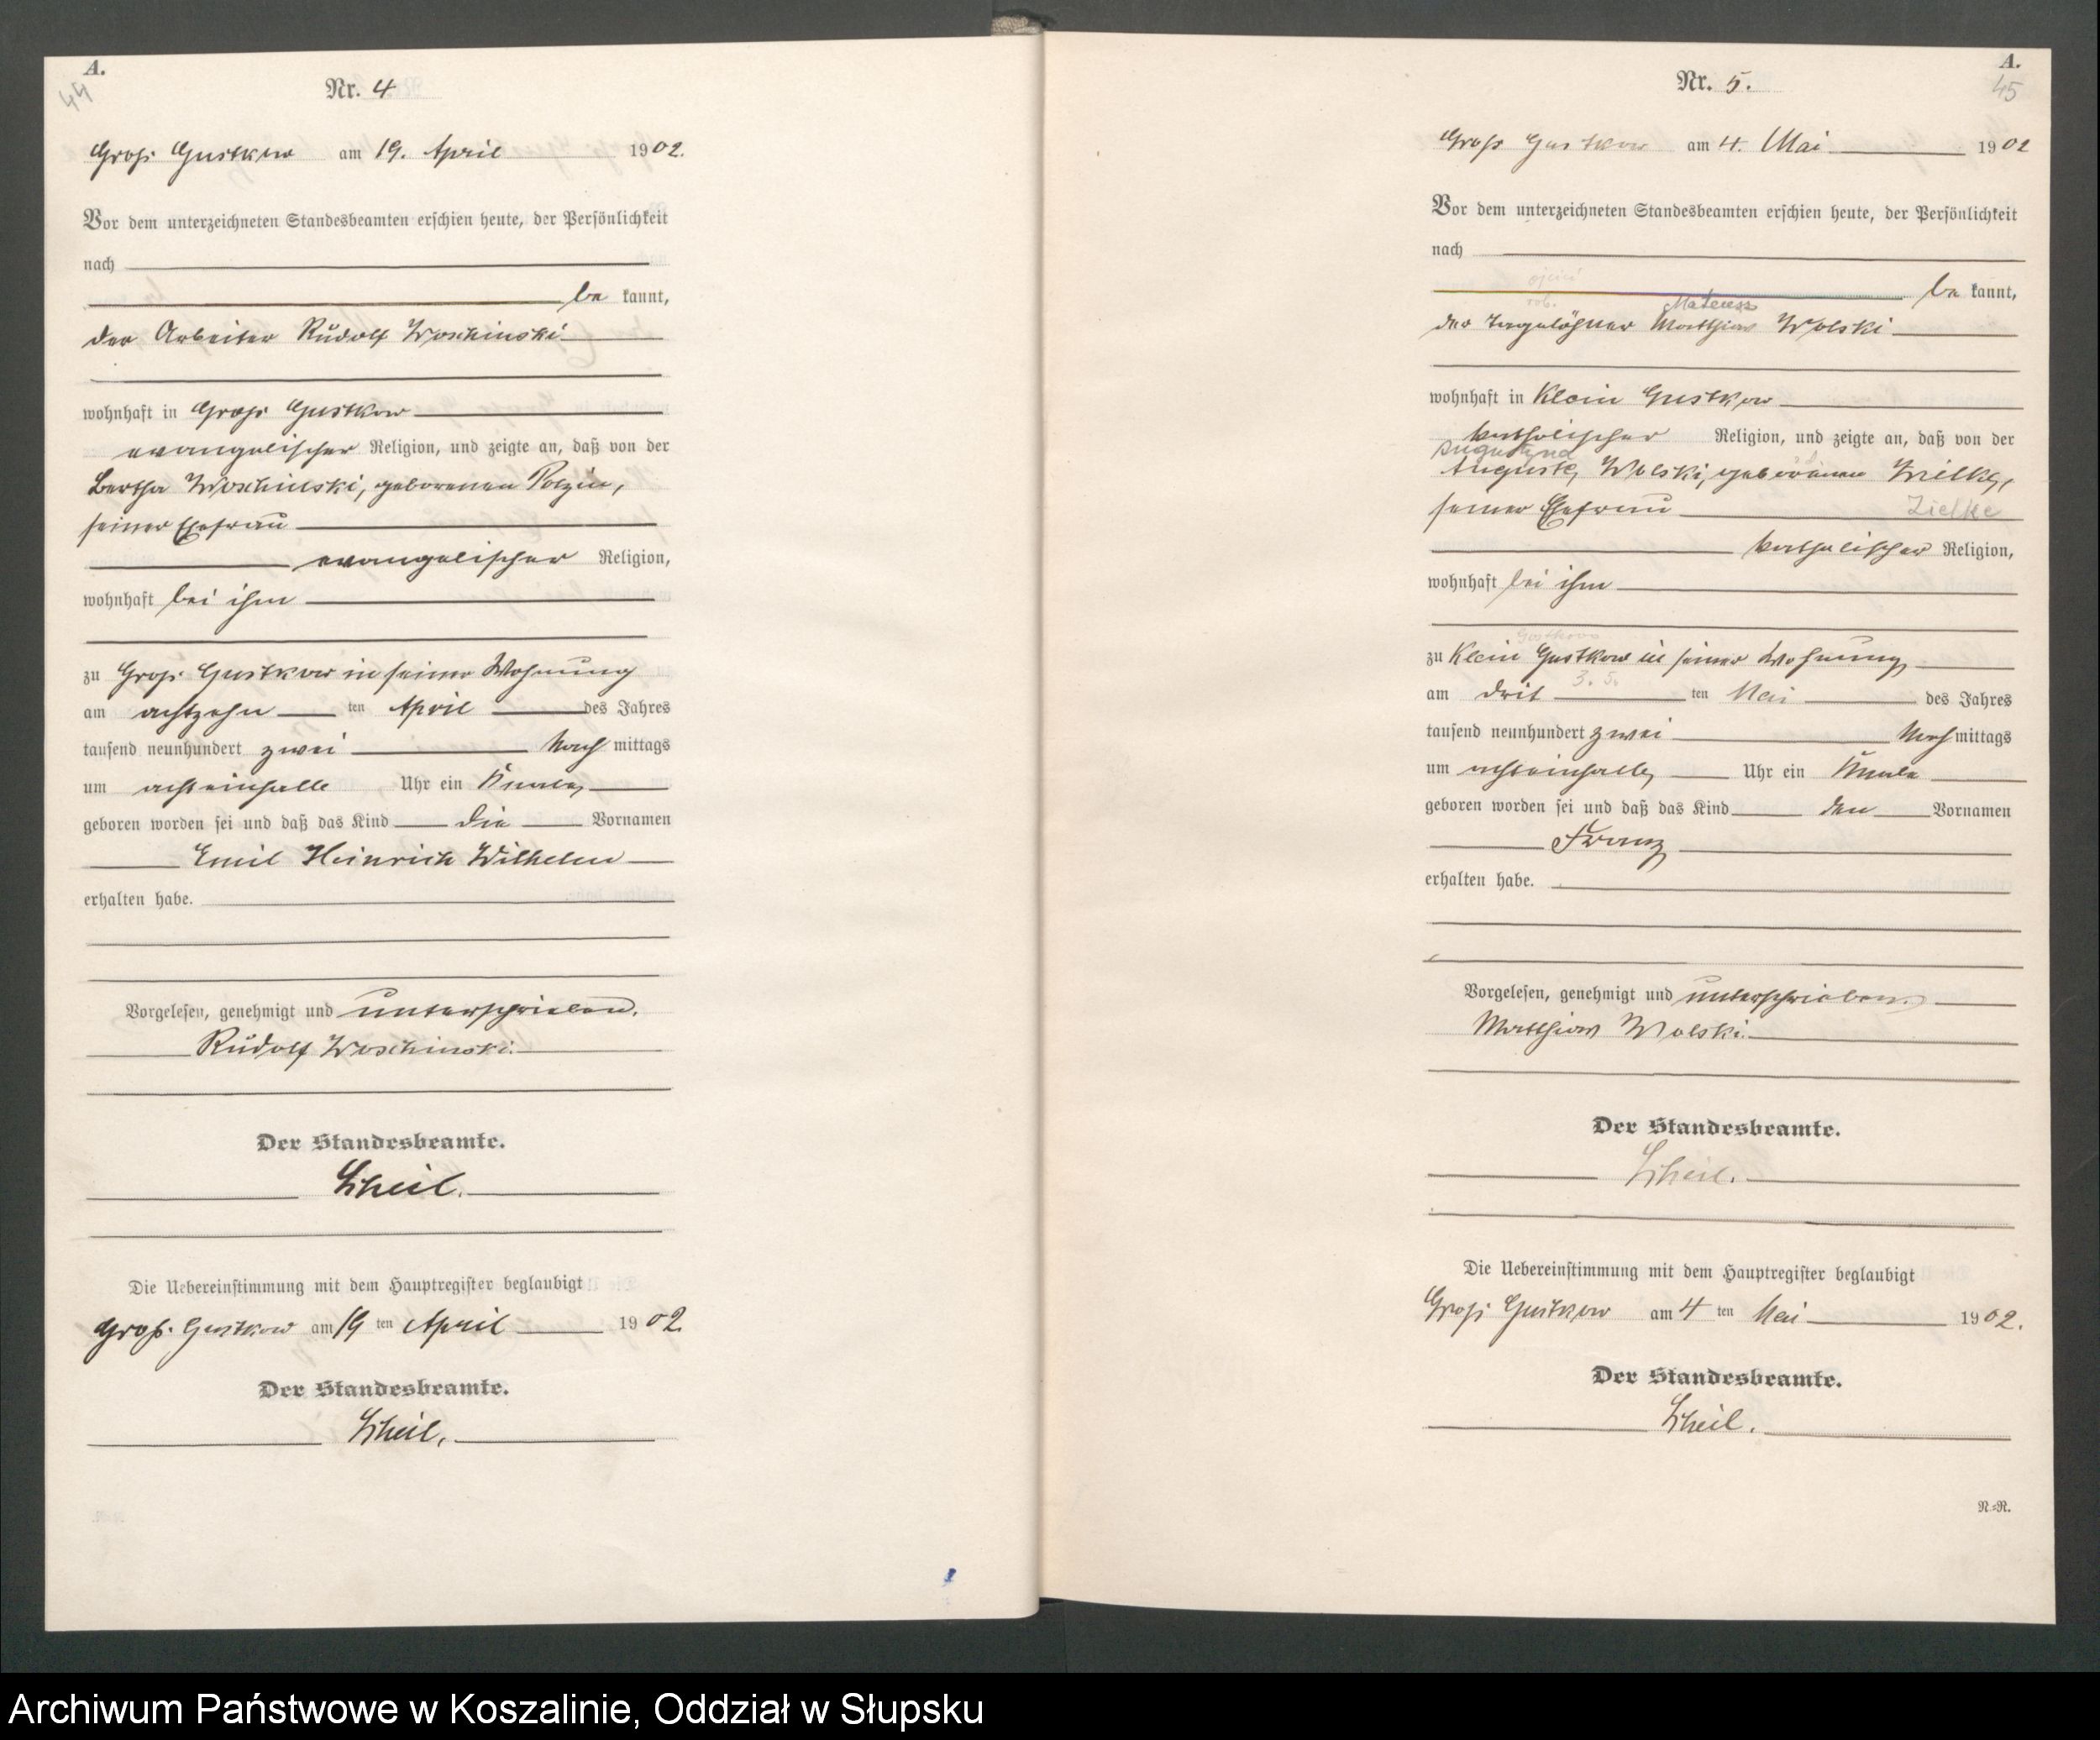 A.
44
Nr. 4
Groß Gustkow am 19. April 1902.
Vor dem unterzeichneten Standesbeamten erschien heute, der Persönlichkeit
nach
be kannt,
der Arbeiter Rudolf Woschinski
wohnhaft in Groß Gustkow
evangelischer Religion, und zeigte an, daß von der
Bertha Woschinski, geborenen Polzin,
seiner Ehefrau
evangelischer Religion,
wohnhaft bei ihm
zu Groß Gustkow in seiner Wohnung
am achtzehn ten April des Jahres
tausend neunhundert zwei Nach mittags
um achteinhalb Uhr ein Knabe
geboren worden sei und daß das Kind die Vornamen
Emil Heinrich Wilhelm
erhalten habe.
Vorgelesen, genehmigt und unterschrieben.
Rudolf Woschinski.
Der Standesbeamte.
Scheil.
Die Uebereinstimmung mit dem Hauptregister beglaubigt
Groß Gustkow am 19 ten April 1902
Der Standesbeamte.
Scheil.
A.
45
Nr. 5.
Groß Gustkow am 4. Mai 1902
Vor dem unterzeichneten Standesbeamten erschien heute, der Persönlichkeit
nach
ojciec
be kannt,
rob. Mateusz
der Tagelöhner Matthias Wolski
wohnhaft in Klein Gustkow
katholischer Religion, und zeigte an, daß von der
Augustyna
Auguste Wolski, geborenen
seiner Ehefrau Zielke
katholischer Religion,
wohnhaft bei ihm
Gostkowo
zu Klein Gustkow in seiner Wohnung
3. 5.
am drit ten Mai des Jahres
tausend neunhundert zwei Nach mittags
um achteinhalb Uhr ein Knabe
geboren worden sei und daß das Kind den Vornamen
Franz
erhalten habe.
Vorgelesen, genehmigt und unterschrieben.
Matthias Wolski.
Der Standesbeamte.
Scheil.
Die Uebereinstimmung mit dem Hauptregister beglaubigt
Groß Gustkow am 4 ten Mai 1902.
Der Standesbeamte.
Scheil.
N.-R.
Archiwum Państwowe w Koszalinie, Oddział w Słupsku